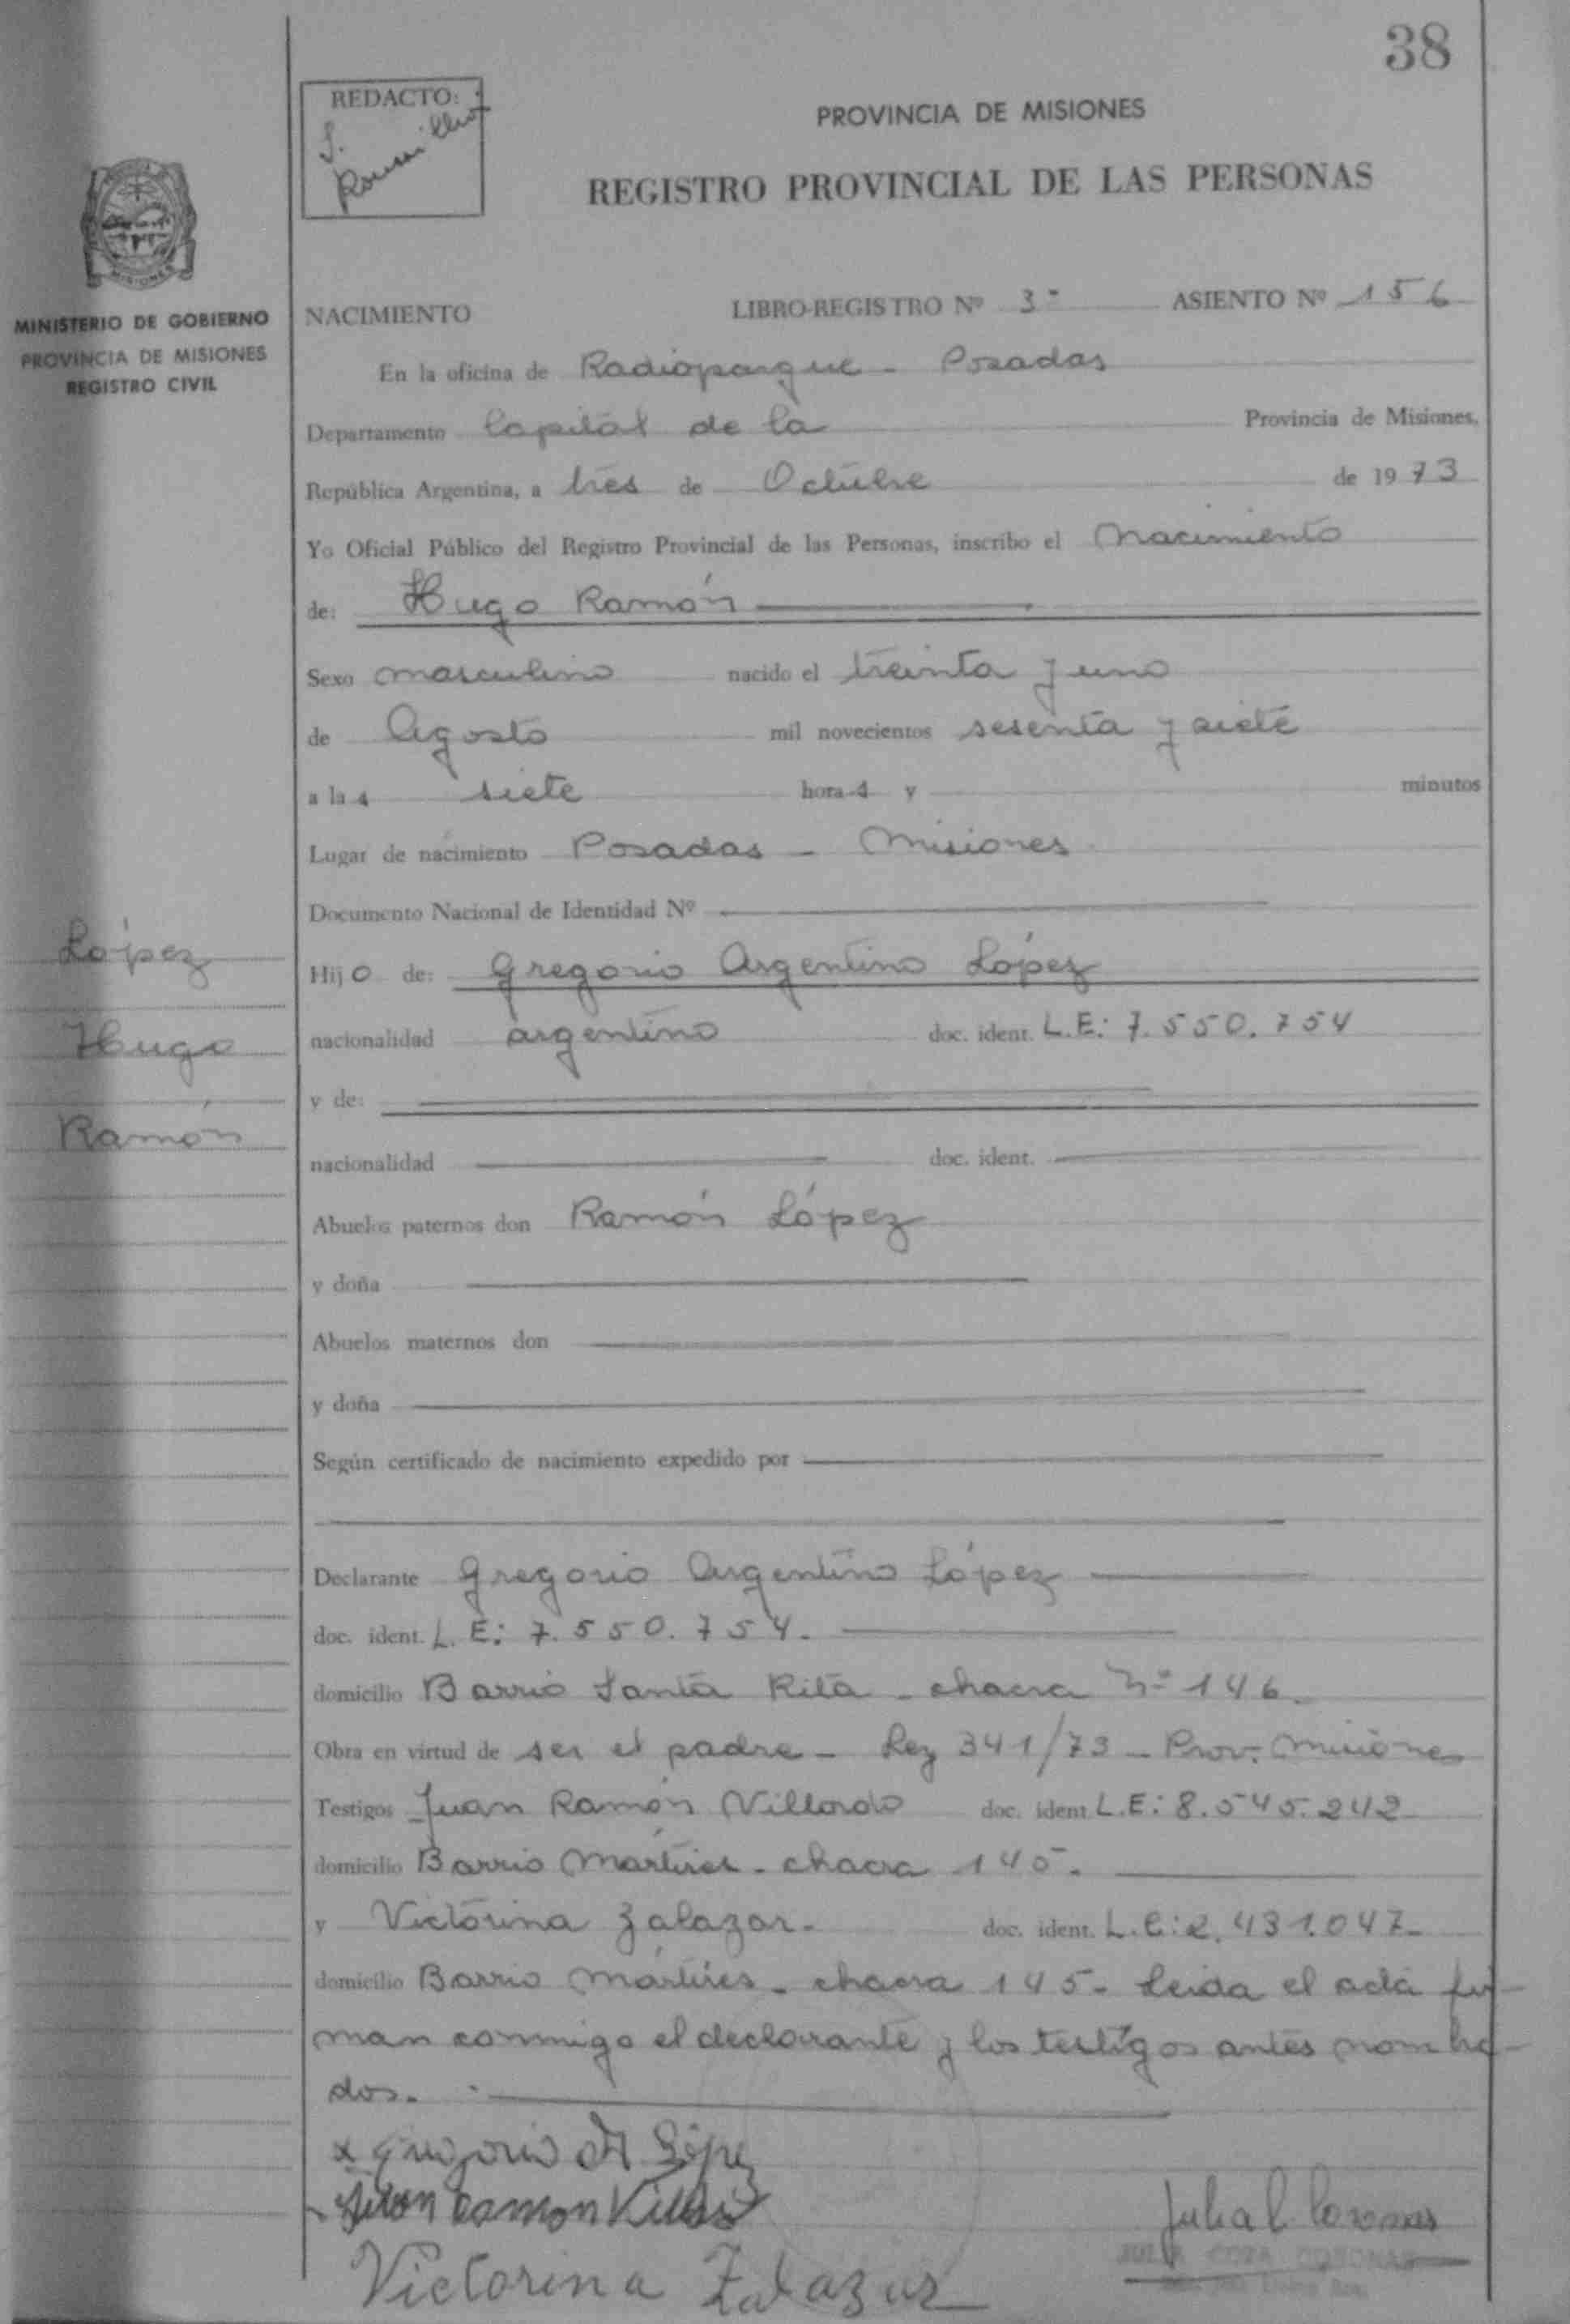 38
REDACTO:
S.
PROVINCIA DE MISIONES
REGISTRO PROVINCIAL DE LAS PERSONAS
MISIONES
MINISTERIO DE GOBIERNO
PROVINCIA DE MISIONES
REGISTRO CIVIL
NACIMIENTO LIBRO-REGISTRO Nº 3º ASIENTO Nº 156
En la oficina de Radioparque - Posadas
Departamento Capital de la Provincia de Misiones,
República Argentina, a tres de Octubre de 1973
Yo Oficial Público del Registro Provincial de las Personas, inscribo el Nacimiento
de: Hugo Ramón
Sexo masculino nacido el treinta y uno
de Agosto mil novecientos sesenta y siete
a las siete horas y minutos
Lugar de nacimiento Posadas - Misiones
Documento Nacional de Identidad Nº
López
Hijo de: Gregorio Argentino López
Hugo
nacionalidad argentino doc. ident. L.E: 7.550.754
y de:
Ramón
nacionalidad doc. ident.
Abuelos paternos don Ramón López
y doña
Abuelos maternos don
y doña
Según certificado de nacimiento expedido por
Declarante Gregorio Argentino López
doc. ident. L.E: 7.550.754.
domicilio Barrio Santa Rita - chacra Nº 146.
Obra en virtud de ser el padre - Ley 341/73 - Prov. Misiones
Testigos Juan Ramón Villordo doc. ident L.E: 8.545.242
domicilio Barrio Mártires - chacra 145.
y Victorina Zalazar. doc. ident. L.C: 2.431.047-
domicilio Barrio Mártires - chacra 145- Leida el acta fir-
man conmigo el declarante y los testigos antes nombra-
dos.
x Gregorio A López
Juan Ramon
Julia C. Coronas
JULIA COPA CORONAS
Victorina Zalazar